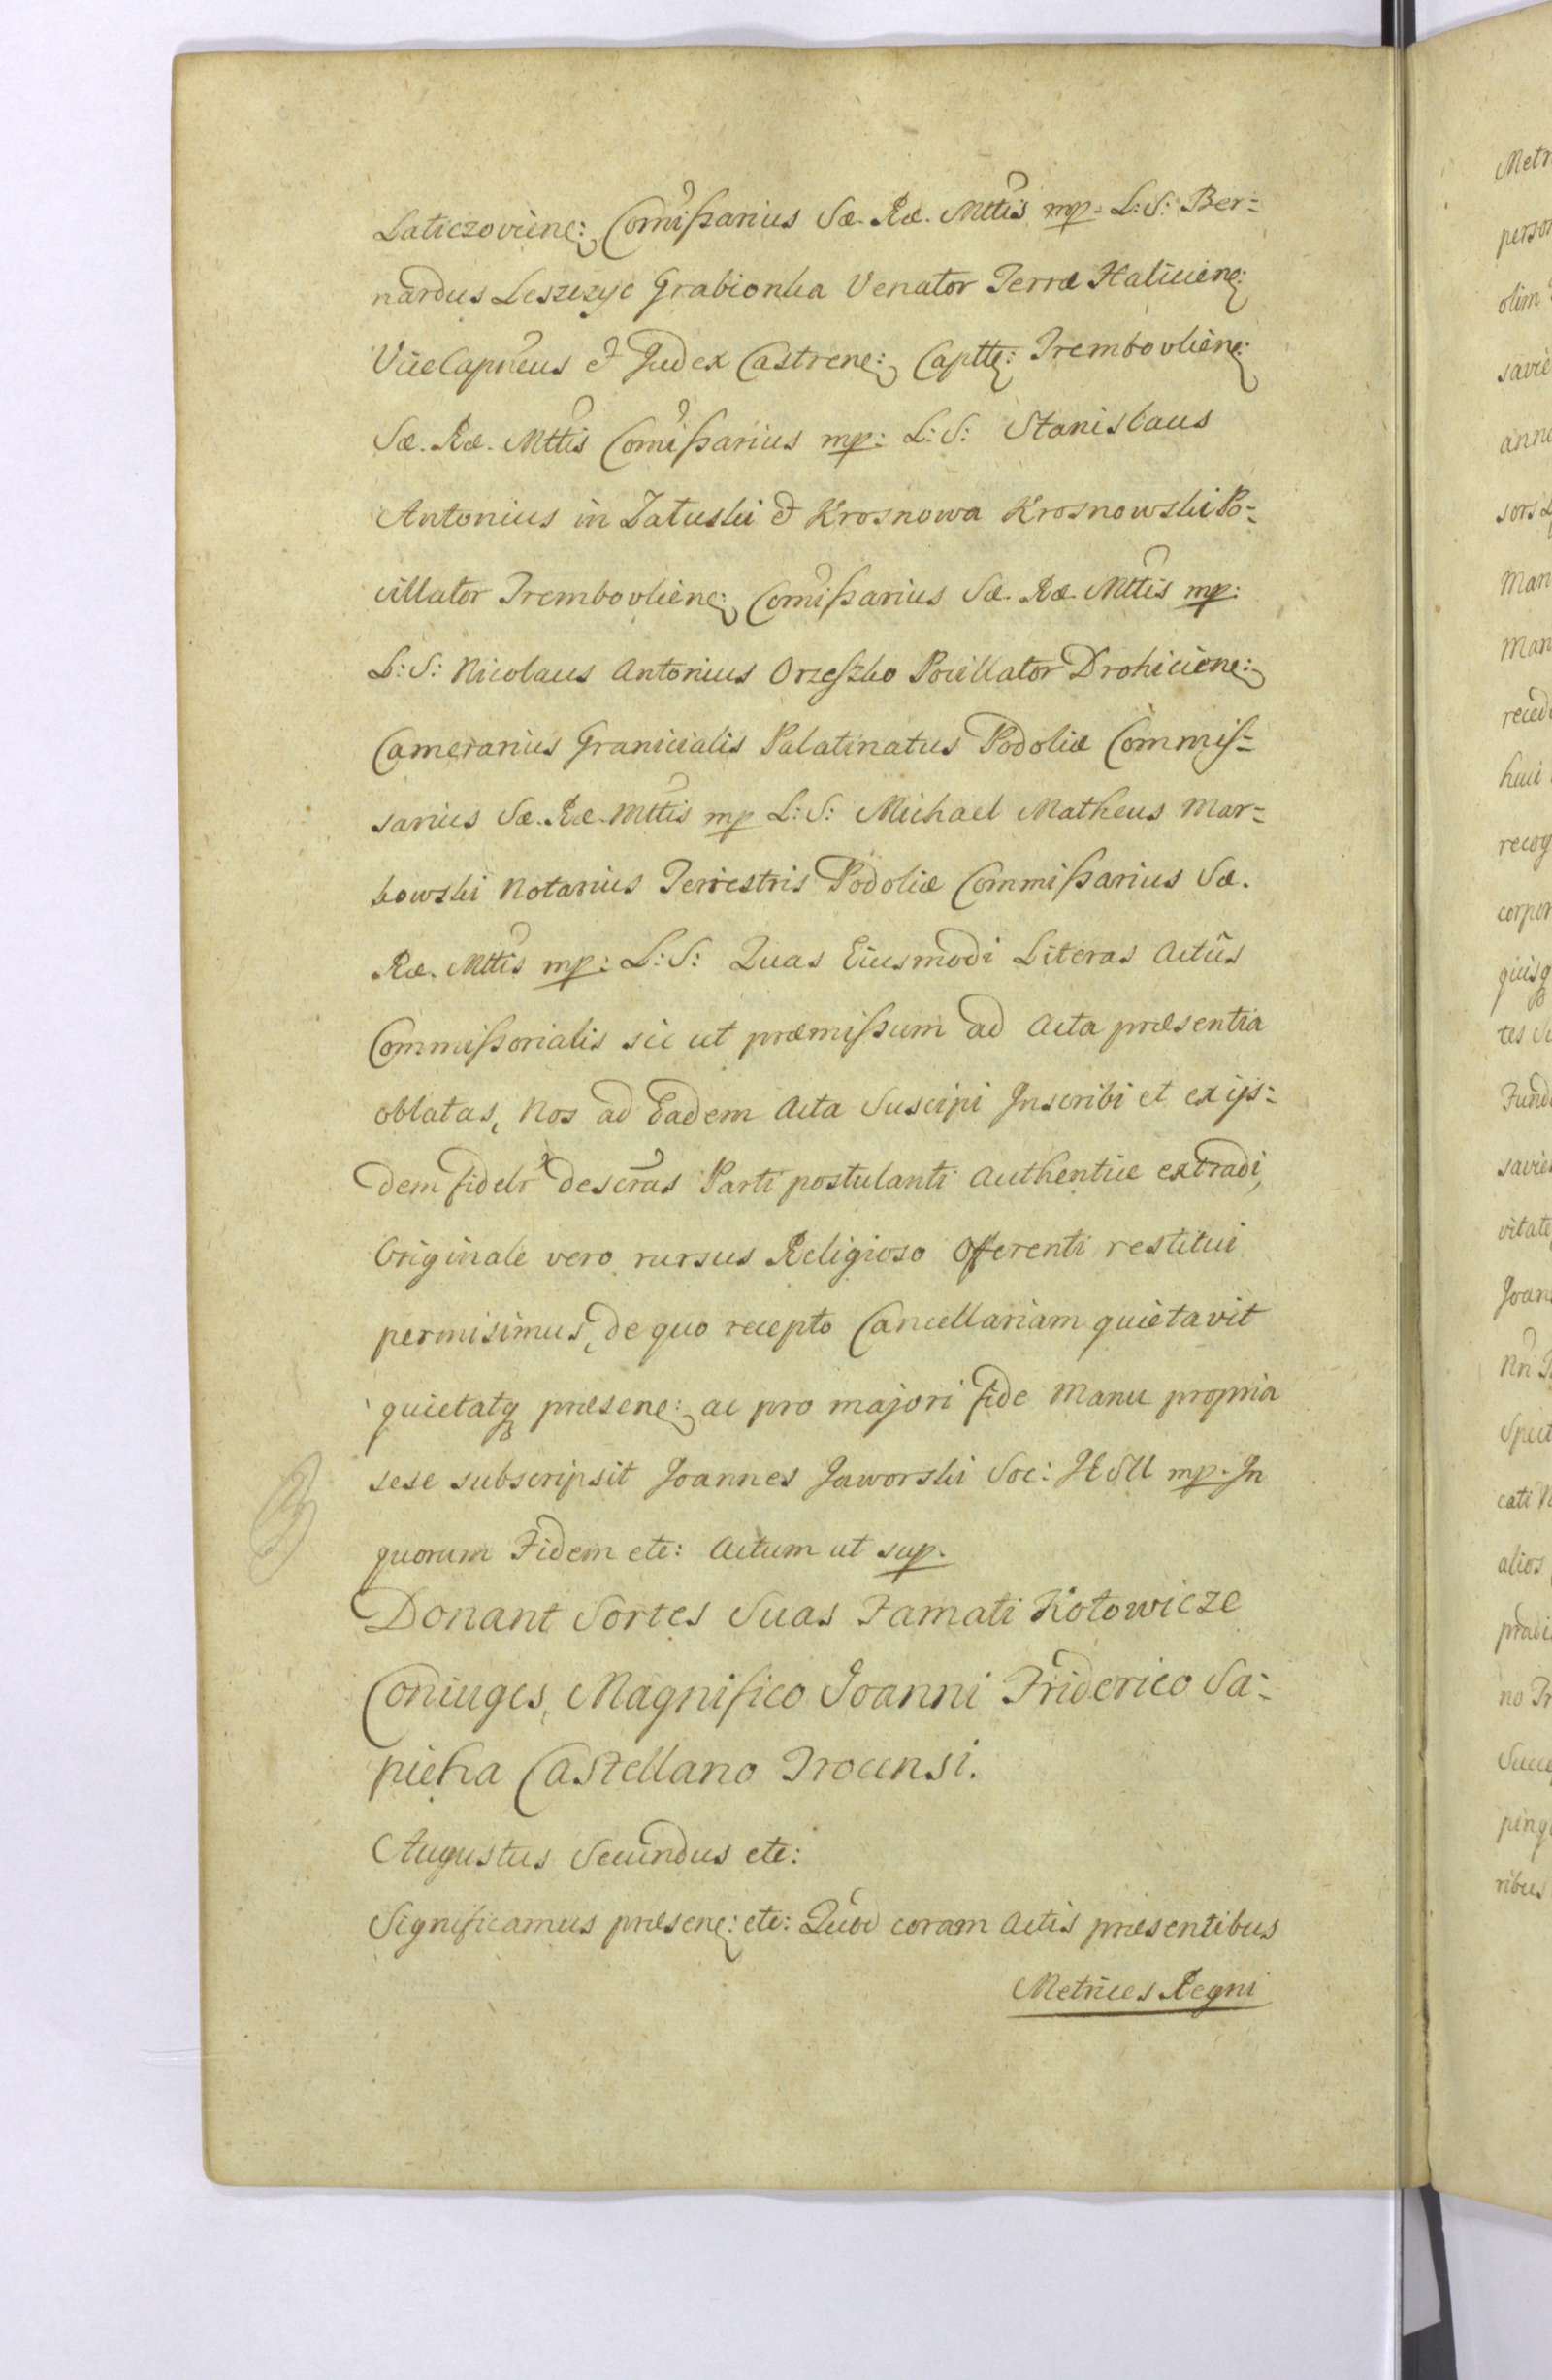 Laticzoviene: Comissarius Sæ. Ræ. Mttis mp. L: S: Ber=
nardus Leszczyc Grabionka Venator Terræ Haliciene:
ViceCapneus & Judex Castrene: Captte: Trembovliene:
Sæ. Ræ. Mttis Comissarius mp: L: S: Stanislaus
Antonius in Załuski & Krosnowa Krosnowski Po=
cillator Trembovliene: Comissarius Sæ. Ræ. Mttis mp:
L: S: Nicolaus Antonius Orzeszko Pocillator Drohiciene:
Camerarius Granicialis Palatinatus Podoliæ Commis=
sarius Sæ. Ræ. Mttis mp L: S: Michael Matheus Mar=
kowski Notarius Terrestris Podoliæ Commissarius Sæ.
Ræ. Mttis mp: L: S: Quas Eiusmodi Literas Actûs
Commissorialis sic ut præmissum ad Acta præsentia
oblatas, Nos ad Eadem Acta Suscipi Inscribi et ex ijs=
dem fidelr descras Parti postulanti Authentice extradi,
Originale vero rursus Religioso Offerenti restitui
permisimus, de quo recepto Cancellariam quietavit
quietatq præsene: ac pro majori fide Manu propria
sese subscripsit Joannes Jaworski Soc: JESU mp. In
quorum Fidem etc: Actum ut sup.
Donant Sortes Suas Famati Kotowicze
Coniuges, Magnifico Joanni Friderico Sa=
pieha Castellano Trocensi.
Augustus Secundus etc:
Significamus præsene: etc: Quod coram Actis præsentibus
Metrices Regni